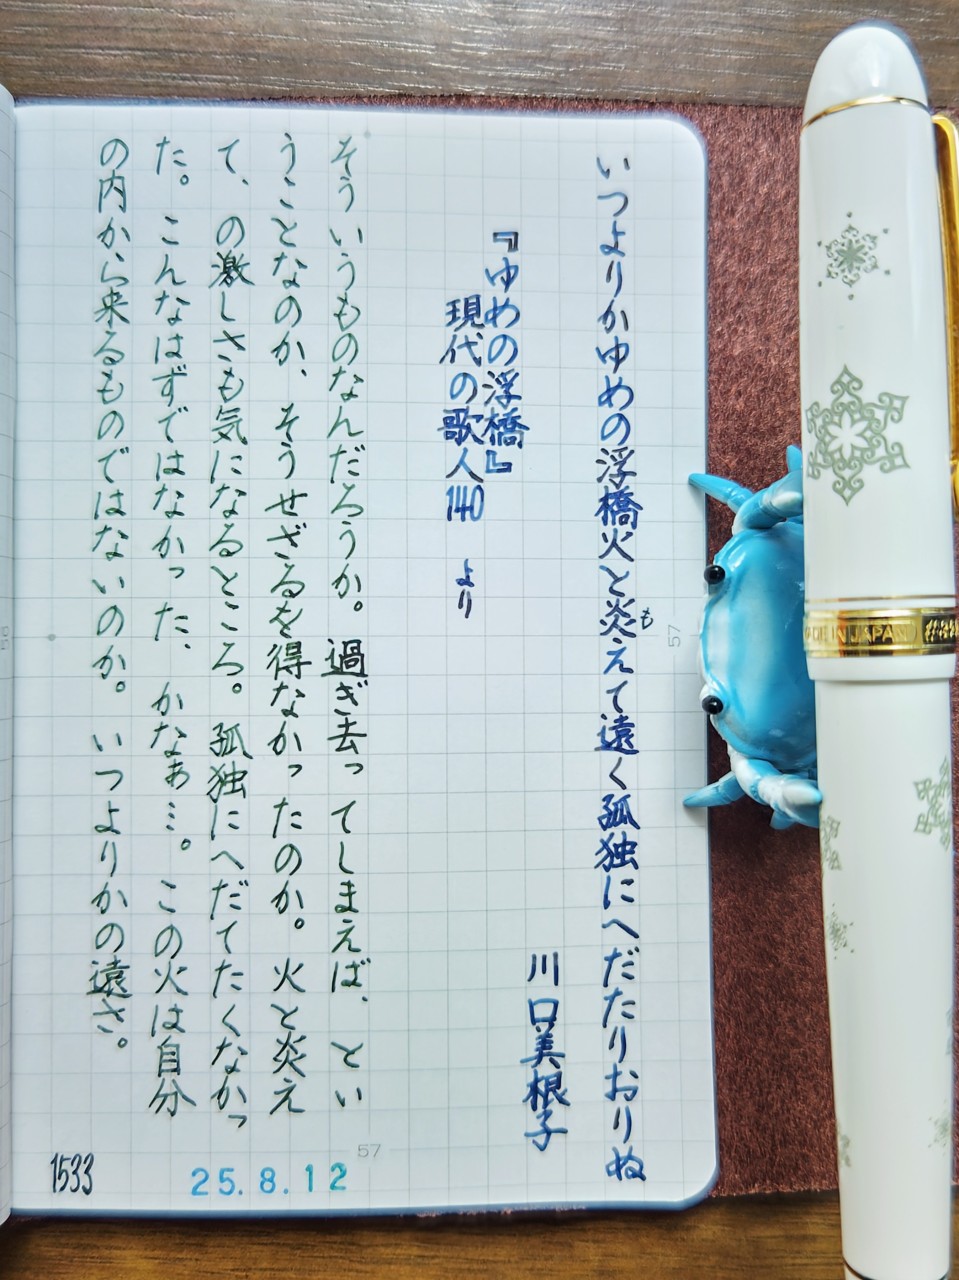 いつよりかゆめの浮橋火と炎えて遠く孤独にへだたりおりぬ
も
川口美根子
『ゆめの浮橋』
現代の歌人140 より
そういうものなんだろうか。過ぎ去ってしまえば、とい
うことなのか、そうせざるを得なかったのか。火と炎え
て、の激しさも気になるところ。孤独にへだてたくなかっ
た。こんなはずではなかった、かなぁ…。この火は自分
の内から来るものではないのか。いつよりかの遠さ。
1533
25.8.12
57
57
MADE IN JAPAN